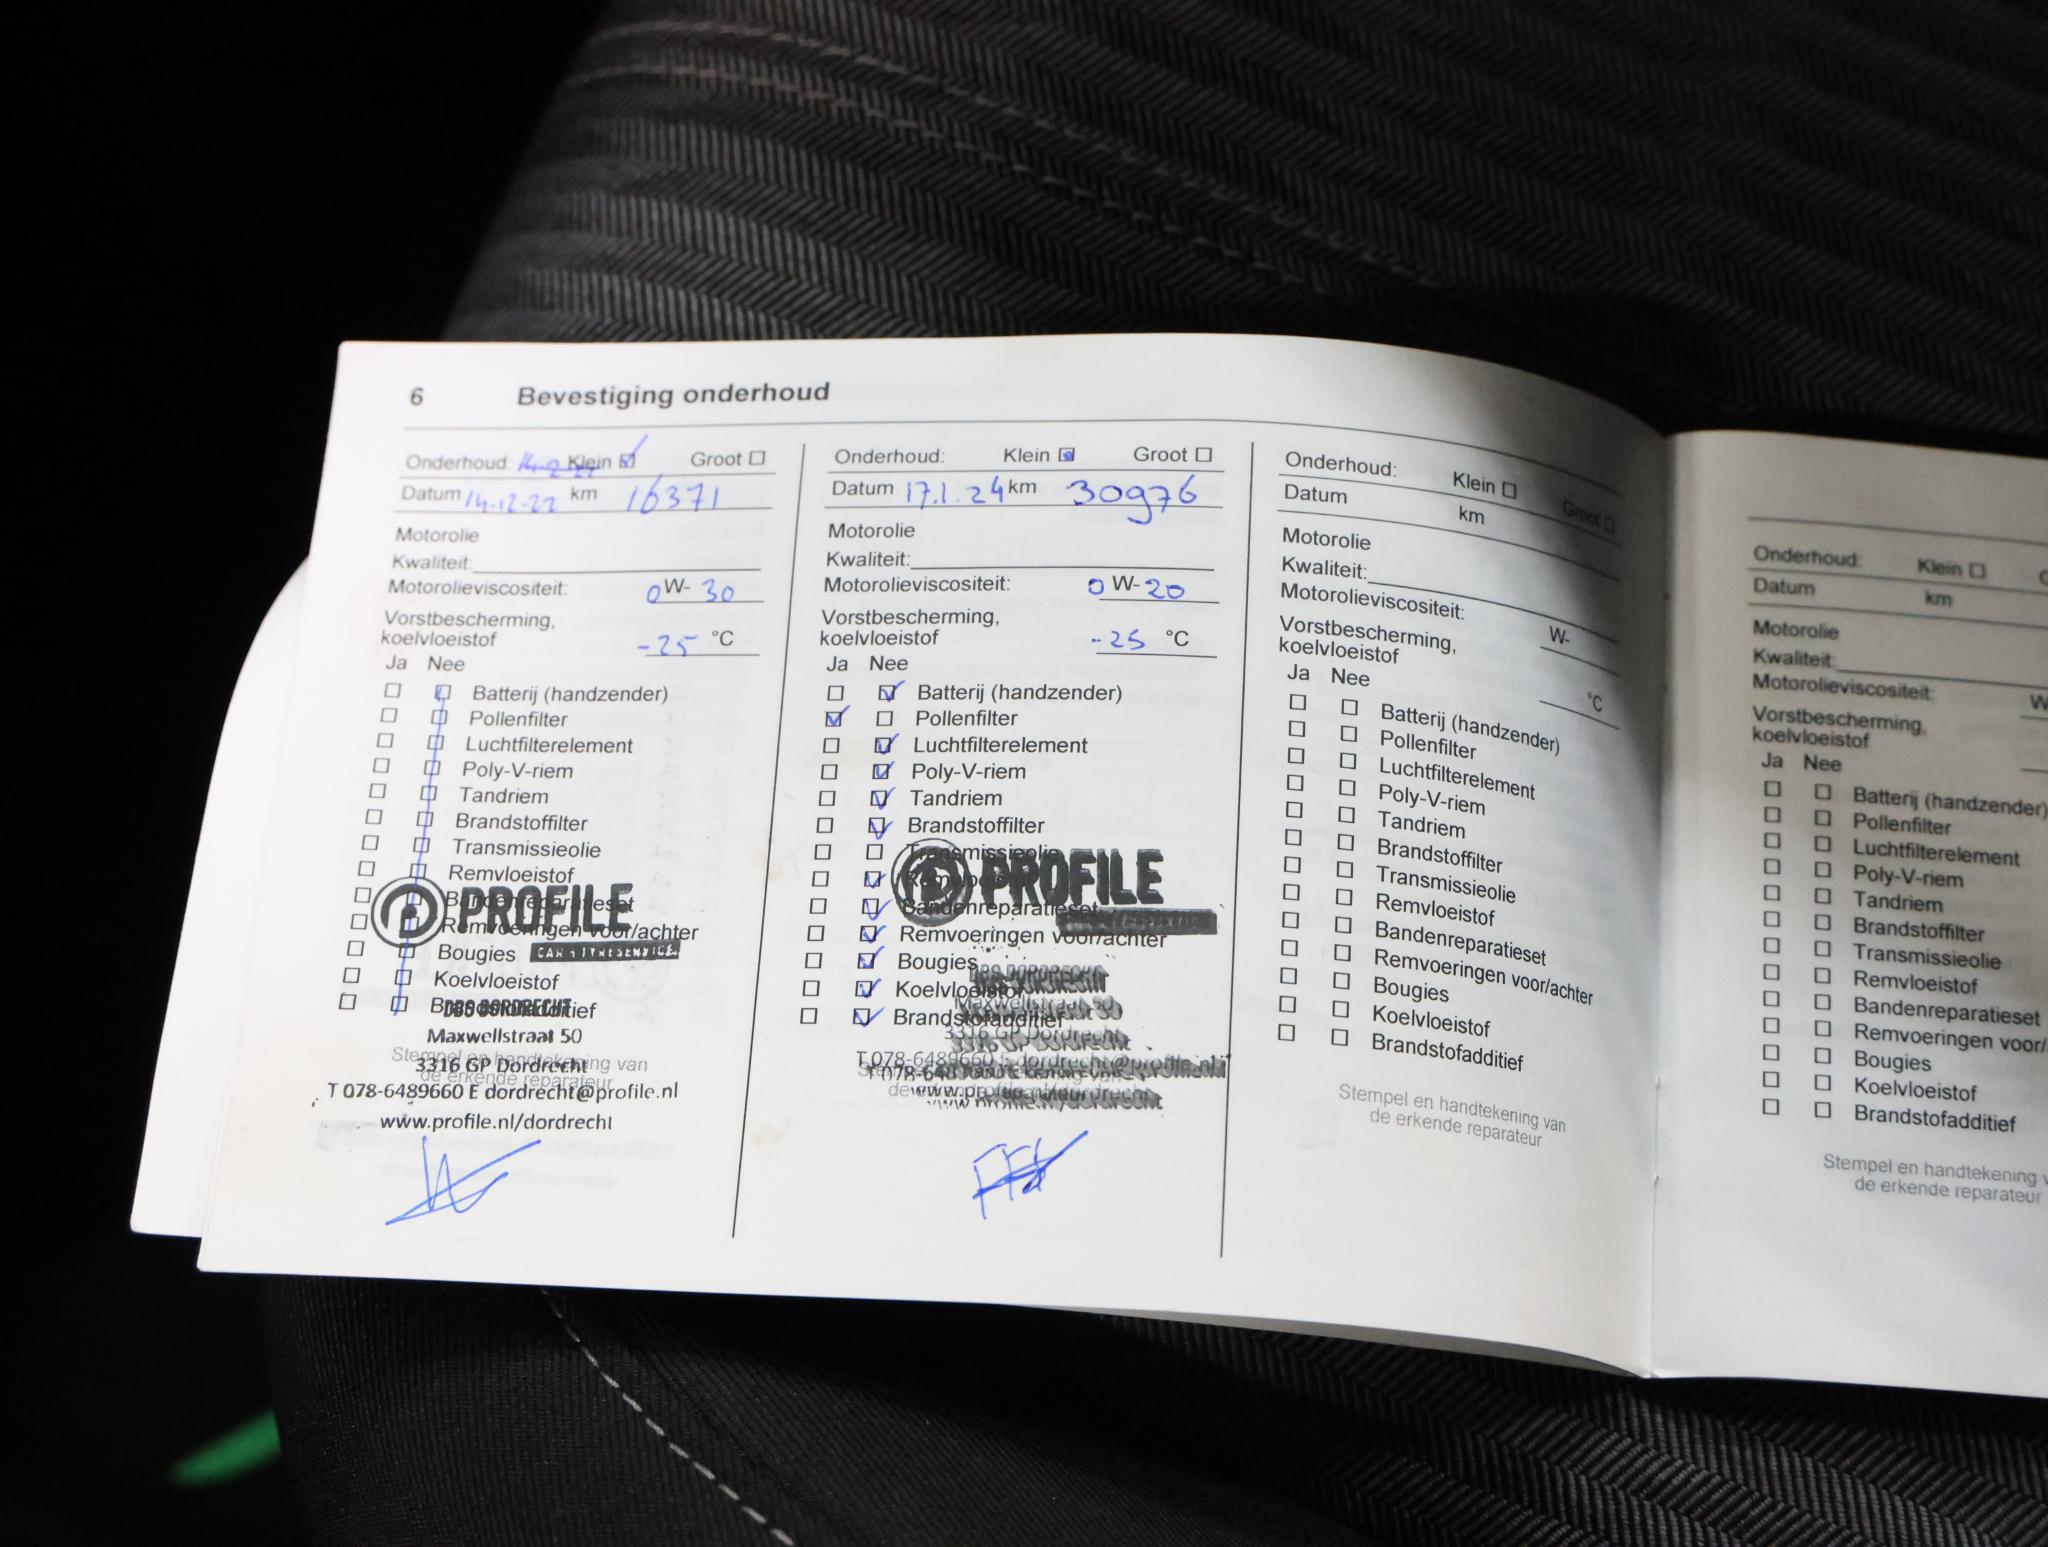 6 Bevestiging onderhoud
Onderhoud: Klein Groot
Datum 14.12.22 km 16371
Motorolie
Kwaliteit:
Motorolieviscositeit: 0 W- 30
Vorstbescherming,
koelvloeistof -25 °C
Ja Nee
Batterij (handzender)
Pollenfilter
Luchtfilterelement
Poly-V-riem
Tandriem
Brandstoffilter
Transmissieolie
Remvloeistof
Bandenreparatieset
PROFILE
Remvoeringen voor/achter
Bougies
Koelvloeistof
Brandstofadditief
DBS DORDRECHT
Maxwellstraat 50
Stempel en handtekening van
3316 GP Dordrecht
de erkende reparateur
T 078-6489660 E dordrecht@profile.nl
www.profile.nl/dordrecht
Onderhoud: Klein Groot
Datum 17.1.24 km 30976
Motorolie
Kwaliteit:
Motorolieviscositeit: 0 W- 20
Vorstbescherming,
koelvloeistof -25 °C
Ja Nee
Batterij (handzender)
Pollenfilter
Luchtfilterelement
Poly-V-riem
Tandriem
Brandstoffilter
Transmissieolie
PROFILE
Bandenreparatieset
Remvoeringen voor/achter
Bougies
DBS DORDRECHT
Koelvloeistof
Maxwellstraat 50
Brandstofadditief
3316 GP Dordrecht
T 078-6489660 E dordrecht@profile.nl
www.profile.nl/dordrecht
Onderhoud: Klein Groot
Datum km
Motorolie
Kwaliteit:
Motorolieviscositeit: W-
Vorstbescherming,
koelvloeistof °C
Ja Nee
Batterij (handzender)
Pollenfilter
Luchtfilterelement
Poly-V-riem
Tandriem
Brandstoffilter
Transmissieolie
Remvloeistof
Bandenreparatieset
Remvoeringen voor/achter
Bougies
Koelvloeistof
Brandstofadditief
Stempel en handtekening van
de erkende reparateur
Onderhoud: Klein
Datum km
Motorolie
Kwaliteit:
Motorolieviscositeit: W
Vorstbescherming,
koelvloeistof
Ja Nee
Batterij (handzender)
Pollenfilter
Luchtfilterelement
Poly-V-riem
Tandriem
Brandstoffilter
Transmissieolie
Remvloeistof
Bandenreparatieset
Remvoeringen voor/
Bougies
Koelvloeistof
Brandstofadditief
Stempel en handtekening v
de erkende reparateur